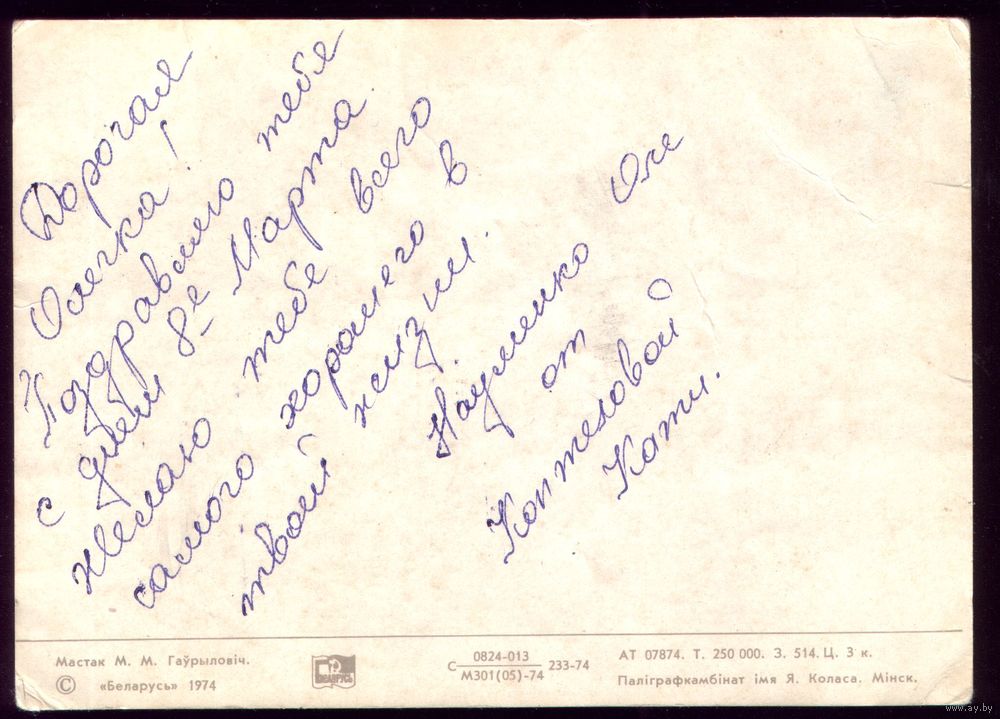 Дорогая
Олечка!
Поздравляю тебя
с днём 8е Марта
желаю тебе всего
самого хорошего в
твоей жизни.
Науменко Оле
от
Коптеловой
Кати.
Мастак М. М. Гаўрыловіч.
© «Беларусь» 1974
БЕЛАРУСЬ
С 0824-013 / М301(05)-74 233-74
АТ 07874. Т. 250 000. З. 514. Ц. 3 к.
Паліграфкамбінат імя Я. Коласа. Мінск.
www.ay.by